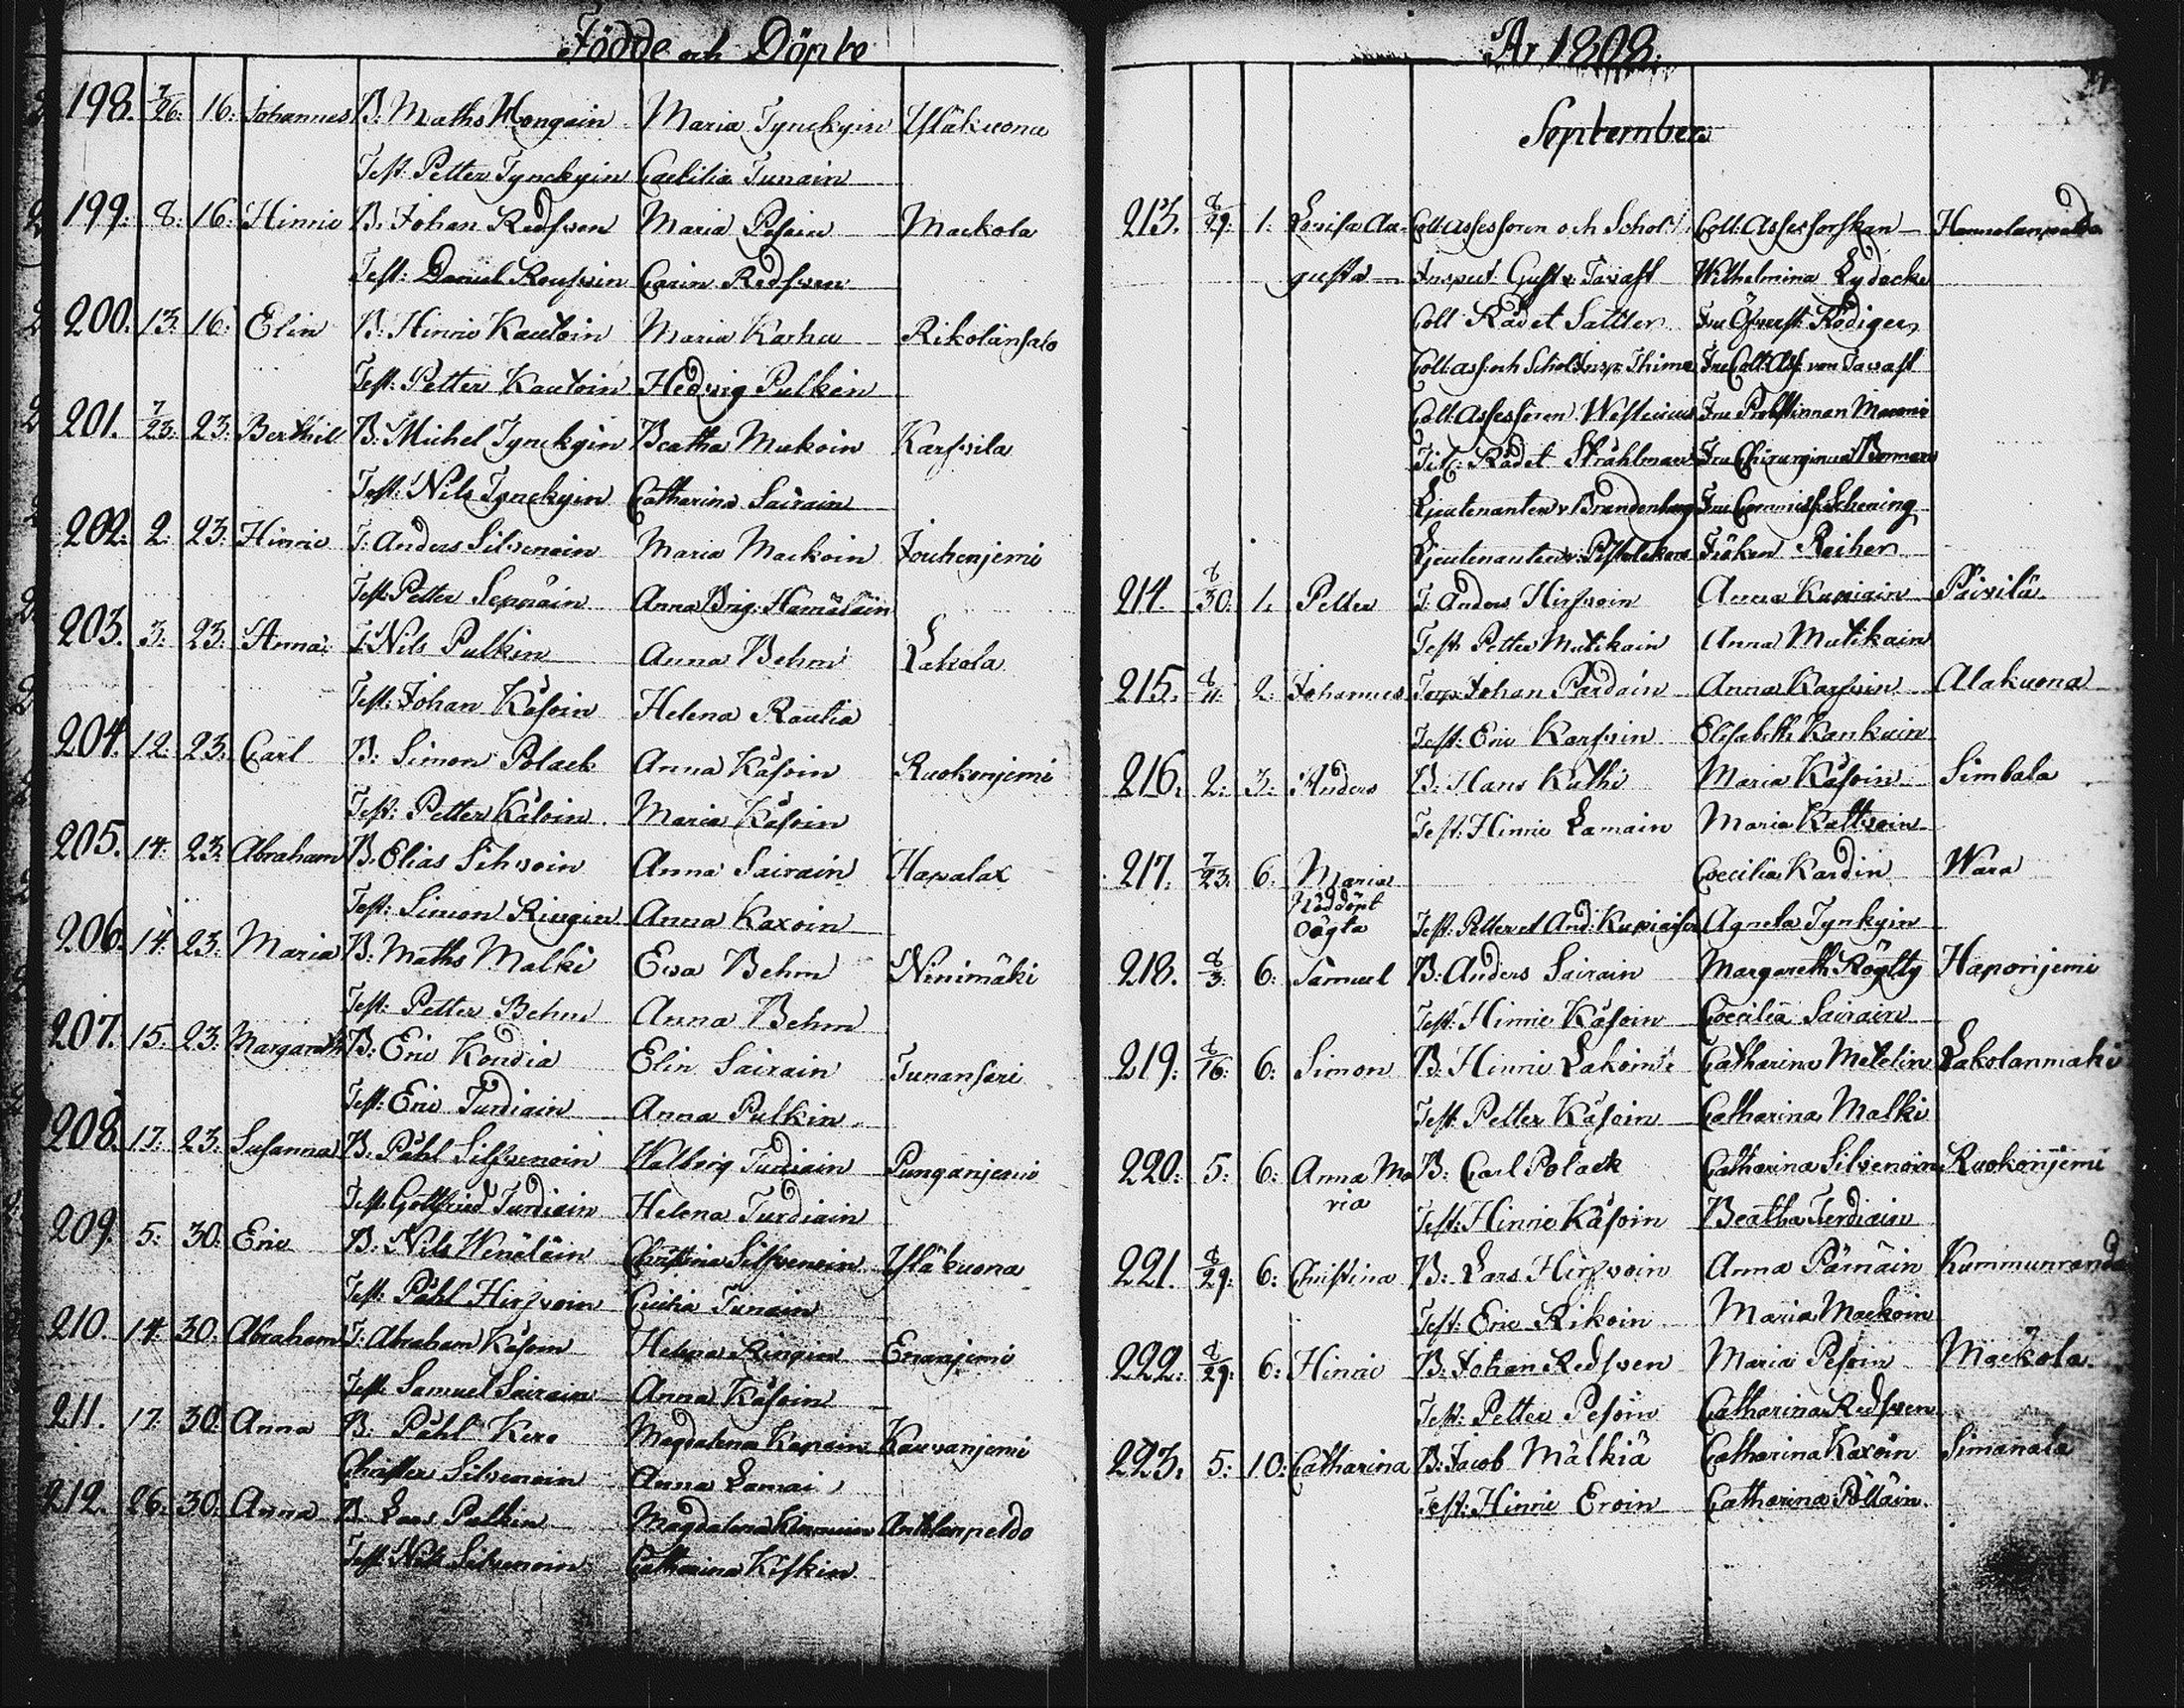 Födde och Döpte
198. 7/26: 16: Johannes B: Maths Hongain Maria Tynckyin Yläkuona
Test: Petter Tynckyin Caecilia Tunain
199. 8: 16: Hinric B. Johan Redsven Maria Pesoin Mackola
Test: Daniel Roupoin Carin Redsven
200. 13: 16: Elin B: Hinric Kautoin Maria Karhu Rikolansalo
Test: Petter Kautoin Hedvig Pulkin
201. 7/23: 23: Berthil B: Michel Tynckyin Beatha Mukoin Karsvila
Test: Nils Tynckyin Catharina Sairain
202. 2: 23: Hinric T: Anders Silvenoin Maria Mackoin Jouhenjemi
Test: Petter Seppäin Anna Brig: Hämäläin
203. 3: 23: Anna T: Nils Pulkin Anna Behm Lakola
Test: Johan Käsoin Helena Rautia
204. 12: 23: Carl B: Simon Polack Anna Käsoin Ruokonjemi
Test: Petter Käsoin Maria Käsoin
205. 14: 23: Abraham B. Elias Sihvoin Anna Sairain Hapalax
Test: Simon Ringin Anna Kaxoin
206. 14: 23: Maria B: Maths Malki Ewa Behm Ninimäki
Test: Petter Behm Anna Behm
207. 15: 23: Margareth B: Eric Kondia Elin Sairain Tunansari
Test: Eric Turdiain Anna Pulkin
208. 17: 23: Susanna B. Påhl Silfvenoin Walborg Turdiain Punganjemi
Test: Gottfried Turdiain Helena Turdiain
209. 5: 30: Eric B: Nils Wenäläin Christina Silfvenoin Yläkuona
Test: Påhl Hirfvoin Cecilia Tunain
210. 14: 30: Abraham T: Abraham Käsoin Helena Ringin Enanjemi
Test: Samuel Sairain Anna Käsoin
211. 17: 30: Anna B: Påhl Kero Magdalena Kapain Kauvanjemi
Christer Silvenoin Anna Lamai
212. 26: 30: Anna B. Lars Pulkin Magdalena Anttlanpeldo
Test: Nils Silvenoin Catharina Kiskin
År 1808.
September
213. 8/29: 1: Lovisa Au- Coll: Assessoren och Schol: Coll: Assessorskan
gusta Inspect. Gust. v. Tavast Wilhelmina Lydecke
Coll: Rådet Sattler Fru Öfverst: Rödiger
Coll: ass: och Schol: Insp: Thime Fru Coll: Ass: von Tavast
Coll: Assessoren Westenius Fru Probstinnan
Tit: Rådet Stråhlman Fru Chirurginna
Lieutenanten v. Brandenburg Fru Commiss: Schening
Lieutenanten v: Pistolekors Fröken Reiher
214. 8/30: 1. Petter T: Anders Hirfvoin Anna Kupiain Päivilä
Test: Petter Mutikain Anna Mutikain
215. 8/11: 2: Johannes Johan Pardain Anna Karfvin Alakuona
Test: Eric Karfvin Elisabeth Kankain
216. 2: 3: Anders B: Hans Kuthi Maria Käsoin Simbala
Test: Hinric Lamain Maria Kattvoin
217. 7/23: 6: Maria Coecilia Kardin Wara
Nöddöpt
oägta Test: Petter et And: Kupiaisen Agneta Tynkyin
218. 8/3: 6: Samuel B: Anders Sairain Margareth Röglty Haponjemi
Test: Hinric Käsoin Coecilia Sairain
219. 8/16: 6: Simon B: Hinric Lakoin Catharina Metelin Lakolanmäki
Test: Petter Käsoin Catharina Malki
220. 5: 6: Anna Ma B: Carl Polack Catharina Silvenoin Ruokonjemi
ria Test: Hinric Käsoin Beatha Turdiain
221. 8/29: 6: Christina B: Lars Hirfvoin Anna Pärnäin Kummunranda
Test: Eric Rikoin Maria Mackoin
222. 8/29: 6: Hinric B: Johan Redsven Maria Pesoin Mackola
Test: Petter Pesoin Catharina Redsven
223. 5: 10: Catharina B: Jacob Mälkiä Catharina Kaxoin Simanala
Test: Hinric Eroin Catharina Pölläin